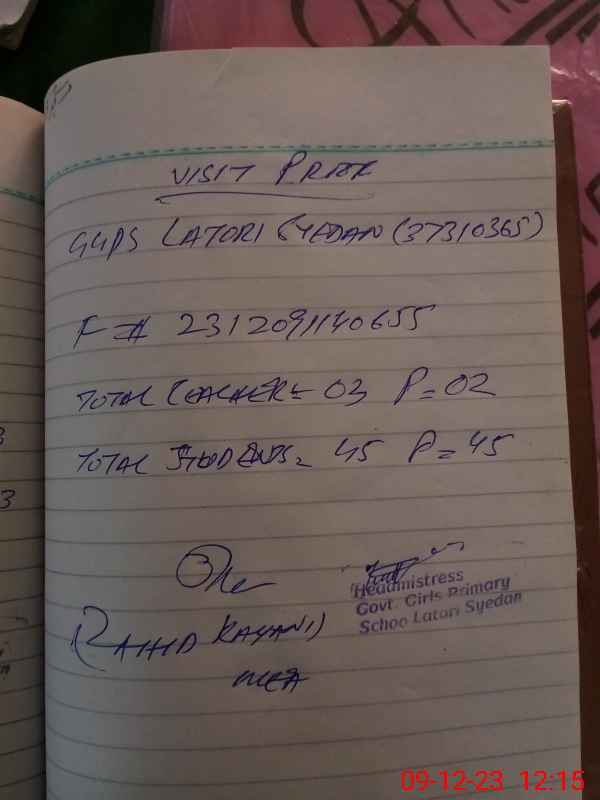 VISIT PROOF
GGPS LATORI SYEDAN (37310365)
F # 2312091140655
TOTAL TEACHER = 03 P = 02
TOTAL STUDENTS = 45 P = 45
Headmistress
Govt. Girls Primary
Schoo Latori Syedan
KAYANI)
MEA
09-12-23 12:15